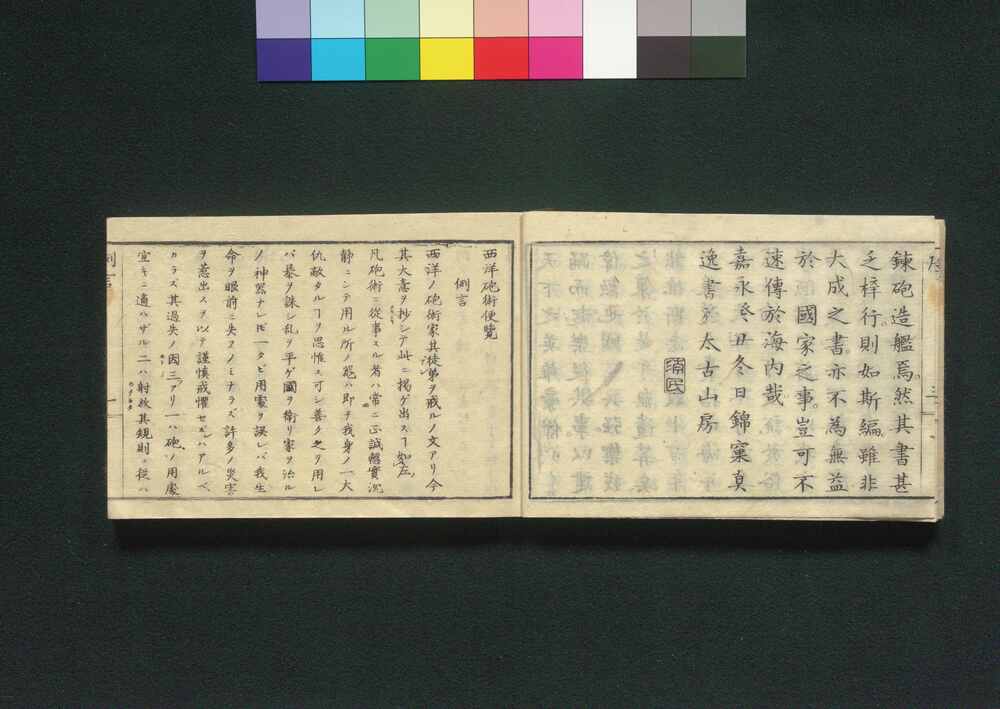 鍊砲造艦焉然其書甚
乏梓行則如斯編雖非
大成之書亦不為無益
於國家之事豈可不
速傳於海內哉
嘉永癸丑冬日錦窠
逸書於太古山房
西洋砲術便覽
例言
西洋ノ砲術家其徒弟ヲ戒ルノ文アリ今
其大意ヲ抄シテ此ニ掲ゲ出スヿ如左
凡砲術ニ從事スル者ハ常ニ正誠
靜ニシテ用ル所ノ器ハ即ヲ我身ノ一大
仇敵タルヿヲ思惟ス可シ善ク之ヲ用レ
バ暴ヲ誅シ乱ヲ平ゲ國ヲ衛リ家ヲ治ル
ノ神器ナレ𪜈一タビ用處ヲ誤レバ我生
命ヲ眼前ニ失フノミナラズ許多ノ災害
ヲ惹出スヲ以テ謹慎戒懼セズンバアルベ
カラズ其過失ノ因三アリ一ハ砲ノ用處
宜キニ適ハザル二ハ射放其規則ニ從ハ
例言
一
序
三